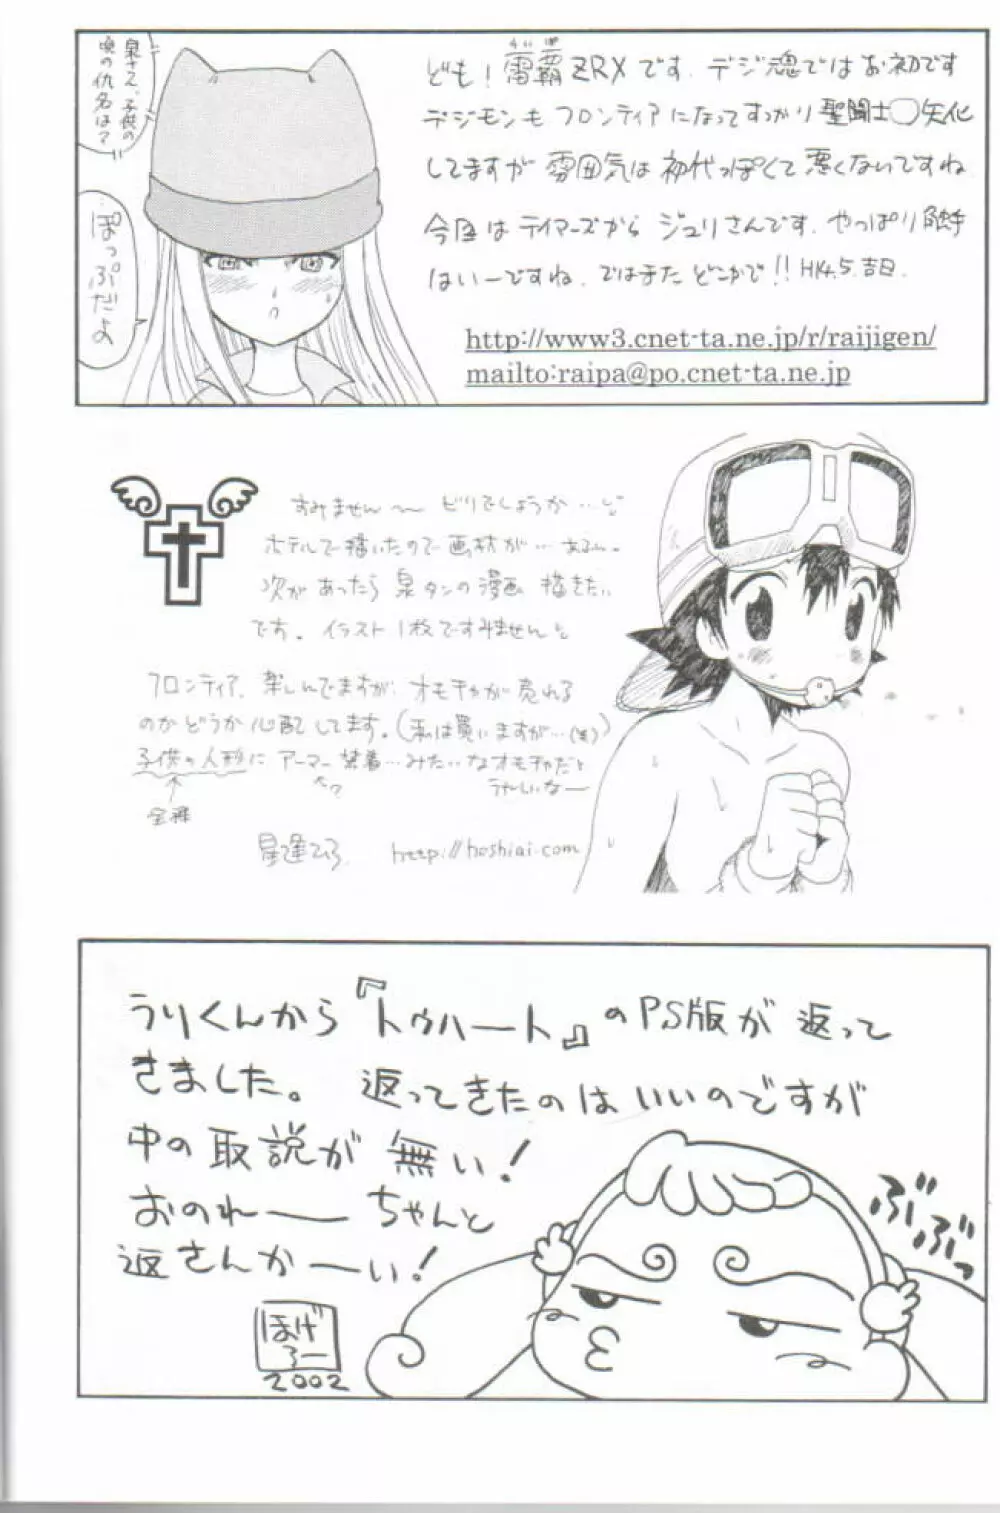 泉さん、子供の
頃の仇名は?
ぽっぷだよ
らいぱ
ども!雷覇ZRXです。デジ魂ではお初です
デジモンもフロンティアになってすっかり聖闘士〇矢化
してますが雰囲気は初代っぽくて悪くないですね
今回はテイマーズからジュリさんです。やっぱり触手
はいーですね。ではまたどこかで!!H14.5.吉日.
http://www3.cnet-ta.ne.jp/r/raijigen/
mailto:raipa@po.cnet-ta.ne.jp
すみません〜ビリでしょうか…
ホテルで描いたので画材が…
次があったら泉タンの漫画描きたい
です。イラスト1枚ですみません
フロンティア、楽しんでますが、オモチャが売れる
のかどうか心配してます。(私は買いますが…(笑))
子供の人形にアーマー装着…みたいなオモチャだと
うれしいなー
全種
星逢ひろ. http://hoshiai.com
うりくんから『トゥハート』のPS版が返って
きました。返ってきたのはいいのですが
中の取説が無い!
おのれー ちゃんと
返さんかーい!
ぶぶっ
ほげろー
2002